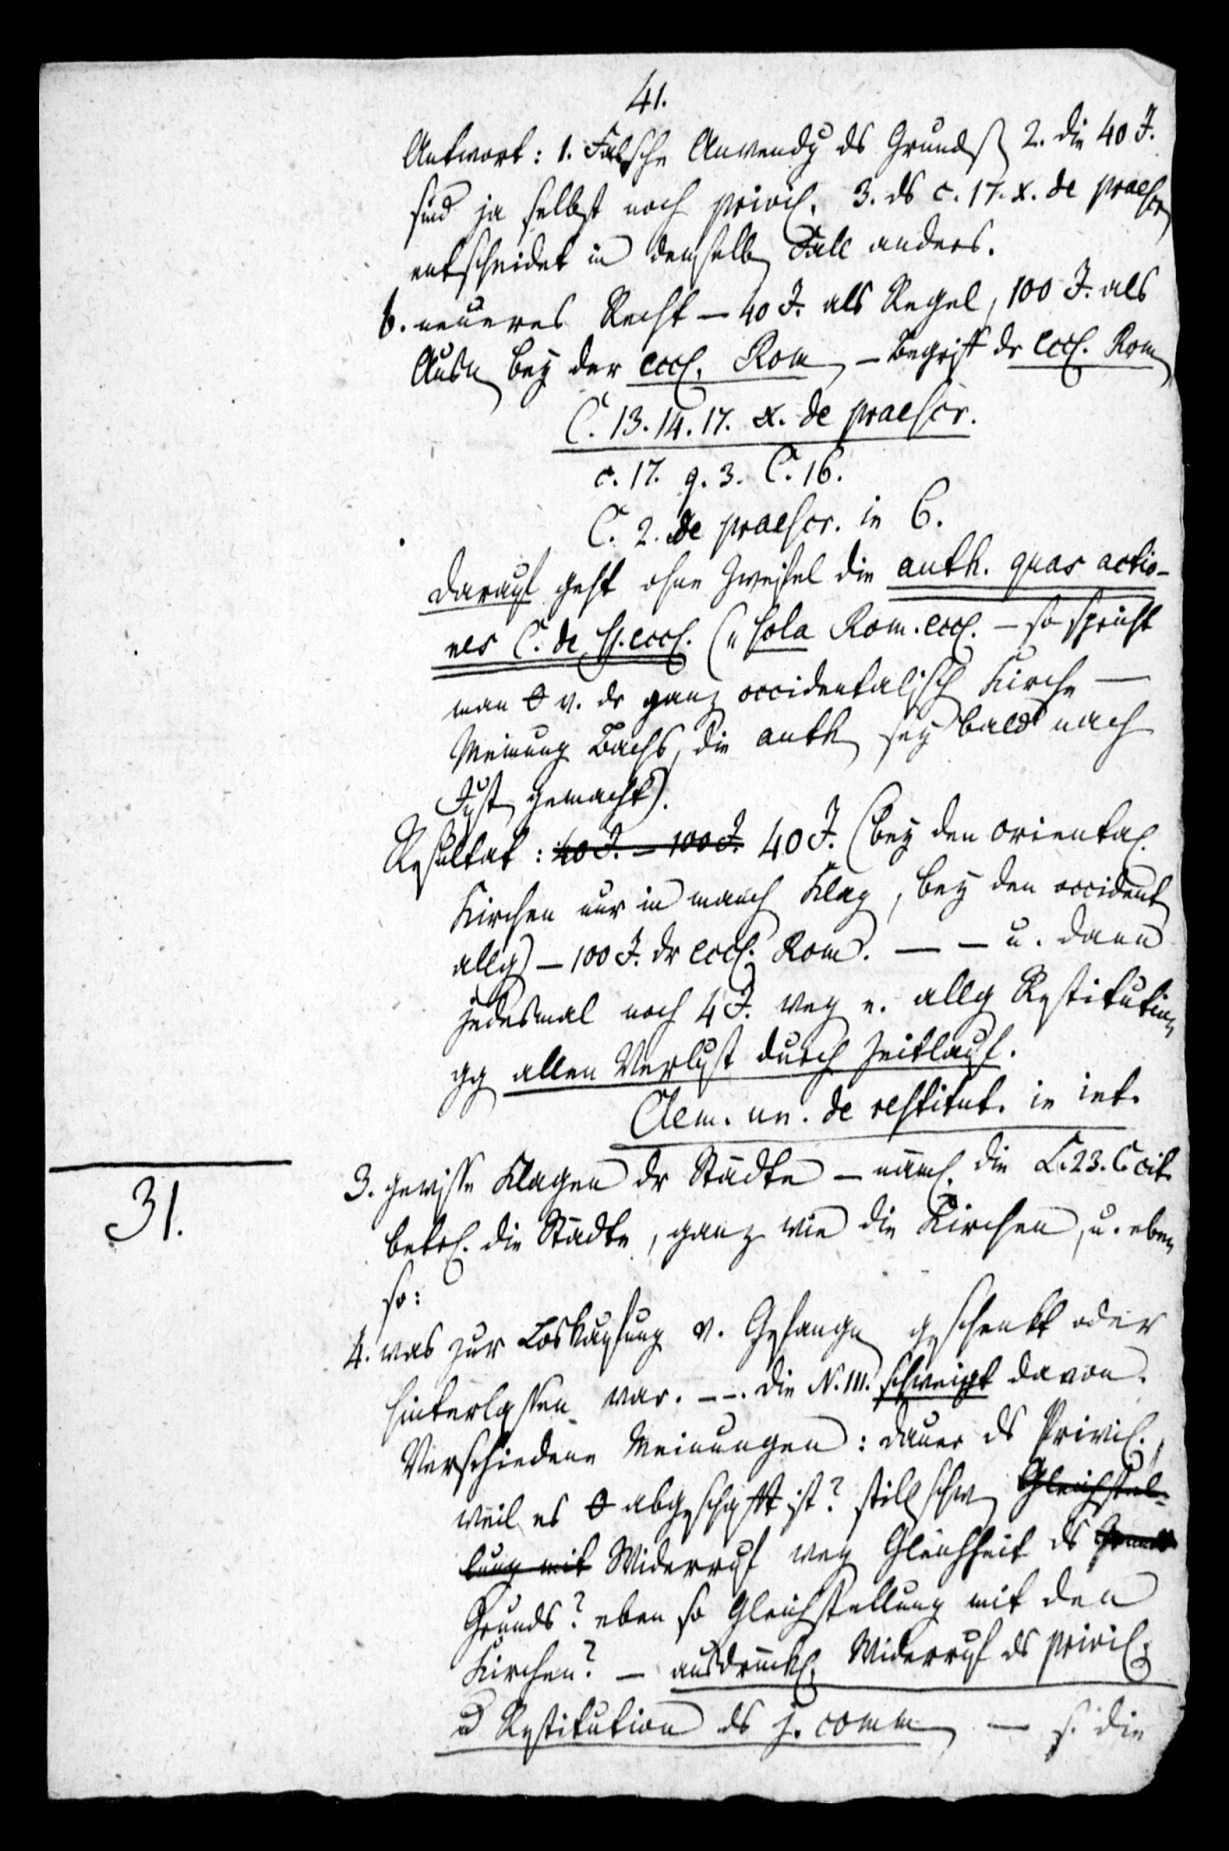 41.
Antwort: 1. Falsche Anwendg ds Grunds 2. die 40 J.
sind ja selbst noch privil. 3. ds c. 17. X. de praescr
entscheidet in demselb Fall anders.
b. neueres Recht – 40 J. als Regel, 100 J. als
Ausn bey der eccl. Rom – Begriff dr eccl. Rom
C. 13. 14. 17. X. de praescr.
c. 17. q. 3. C. 16.
C. 2. de praescr. in 6.
darauf geht ohne Zweifel die auth. quas actio-
nes C. de ss. eccl. („sola Rom. eccl. – so spricht
man 0 v. dr ganz occidentalisch Kirche –
Meinung Bachs, die auth sey bald nach
Just gemacht).
Resultat: 40 J. – 100 J. 40 J. (bey den oriental.
Kirchen nur in manch Klag, bey den occident
allg) – 100 J. dr eccl. Rom. – – u. dann
jedesmal noch 4 J. weg e. allg Restitution
gg allen Verlust durch Zeitlauf.
Clem. un. de restitut. in int.
31.
3. gewisse Klagen dr Städte – näml. die L. 23. C. cit.
betrf. die Städte, ganz wie die Kirchen, u. eben
so:
4. was zur Loskaufung v. Gefange geschenkt oder
hinterlassen war. –– die N. 111. schweigt davon.
Verschiedene Meinungen: Dauer ds Privil.,
weil es 0 abgeschafft ist? stillschw Gleichstel-
lung mit Widerruf weg Gleichheit ds
Grunds? eben so Gleichstellung mit den
Kirchen? – ausdrückl. Widerruf ds privil.
u Restitution ds j. comm – s. die